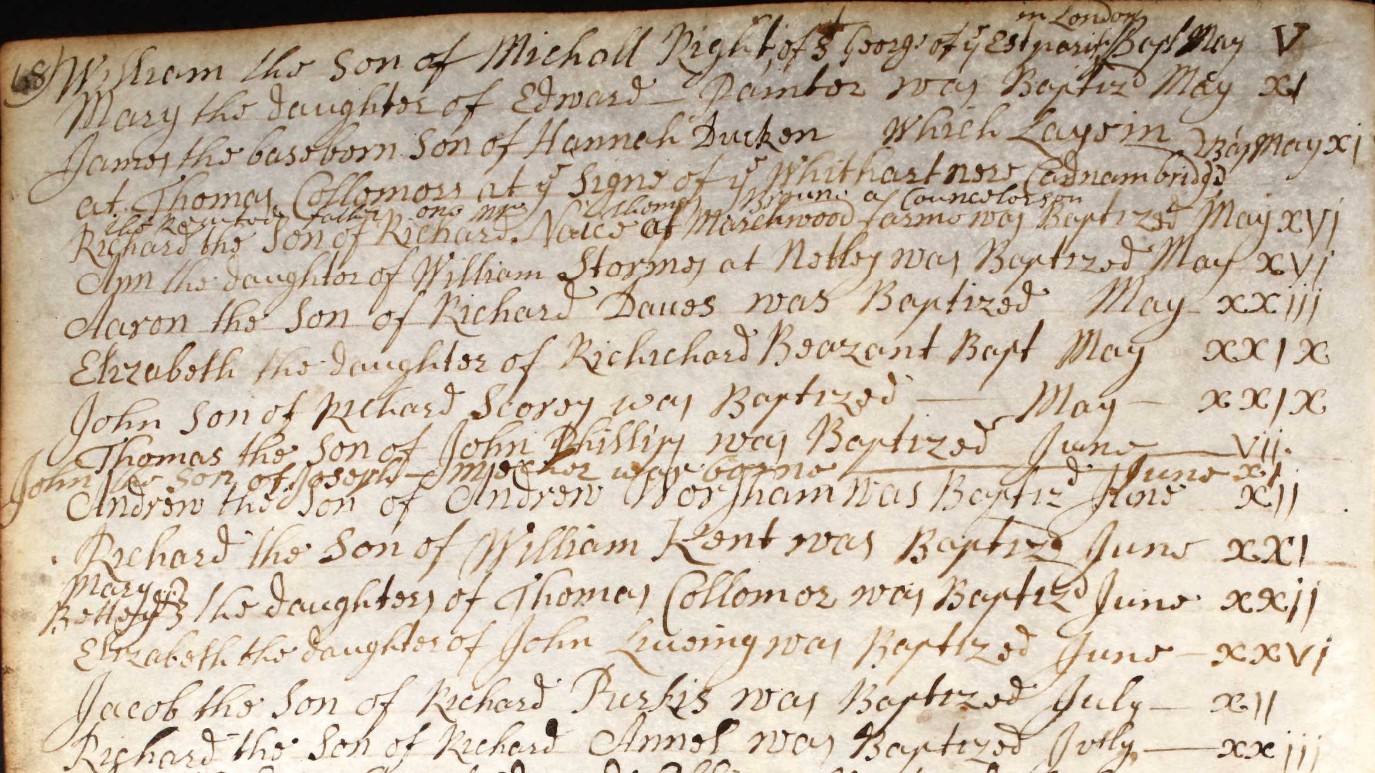 in London
68) William the Son of Micholl Right, of St George of ye Est parish Bapt May V
Mary the daughter of Edward Painter was Baptizd May XI
James the baseborn Son of Hannah Ducken Which Laye in
at Thomas Collomors at ye Signe of ye Whithart nere Cadnambridge Bap May xi
the Reputed father one Mr Thomas Browne a Councelor son
Richard the Son of Richard Nalce at Marchwood farme was Baptized May XVI
Ann the daughter of William Stormes at Netley was Baptized May XVI
Aaron the Son of Richard Daues was Baptized May XXIII
Elizabeth the daughter of Richrichard Beazant Bapt May XXIX
John Son of Richard Scorey was Baptized — May — XXIX
Thomas the Son of John Phillips was Baptized June VII
John the Son of Joseph was borne June XI
Andrew the Son of Andrew Worsham was Baptizd June XII
Richard the Son of William Kent was Baptizd June XXI
Mary &
Bettey the daughters of Thomas Collomor was Baptizd June XXII
Elizabeth the daughter of John Liveing was Baptized June — XXVI
Jacob the Son of Richard Purkis was Baptized July — XII
Richard the Son of Richard Annel was Baptized July — XXIII